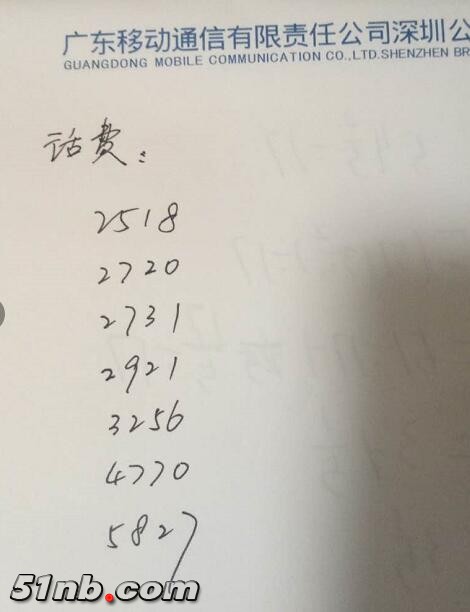 广东移动通信有限责任公司深圳公
GUANGDONG MOBILE COMMUNICATION CO.,LTD.SHENZHEN BR
话费:
2518
2720
2731
2921
3256
4770
5827
51nb.com